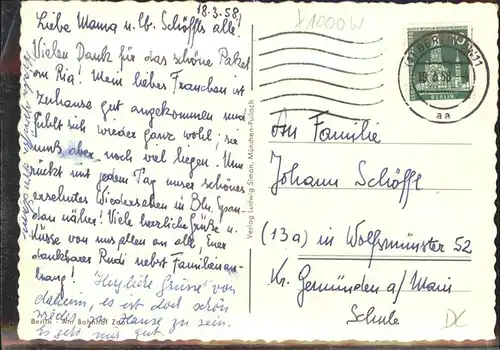 18.3.58!
Liebe Mama u. lb. Schöffls alle!
Vielen Dank für das schöne Paket
von Ria! Mein liebes Frauchen ist
zuhause gut angekommen und
fühlt sich wieder ganz wohl; sie
muß aber noch viel liegen. Nun
rückt mit jedem Tag unser schönes
ersehntes Wiedersehen in Bln. Span-
dau näher! Viele herzliche Grüße u.
Küsse von uns allen an alle, Euer
dankbarer Rudi nebst Familienan-
hang!
"Herzliche Grüße" von
daheim, es ist doch schön
wieder zu Hause zu sein.
Es geht mir gut.
Berlin Am Bahnhof Zoo
Verlag Ludwig Simon, München-Pullach
1000 W
BERLIN
11
18.3.58
aa
BERLIN
An Familie
Johann Schöffl
(13a) in Wolfsmünster 52
Kr. Gemünden a/Main
Schule